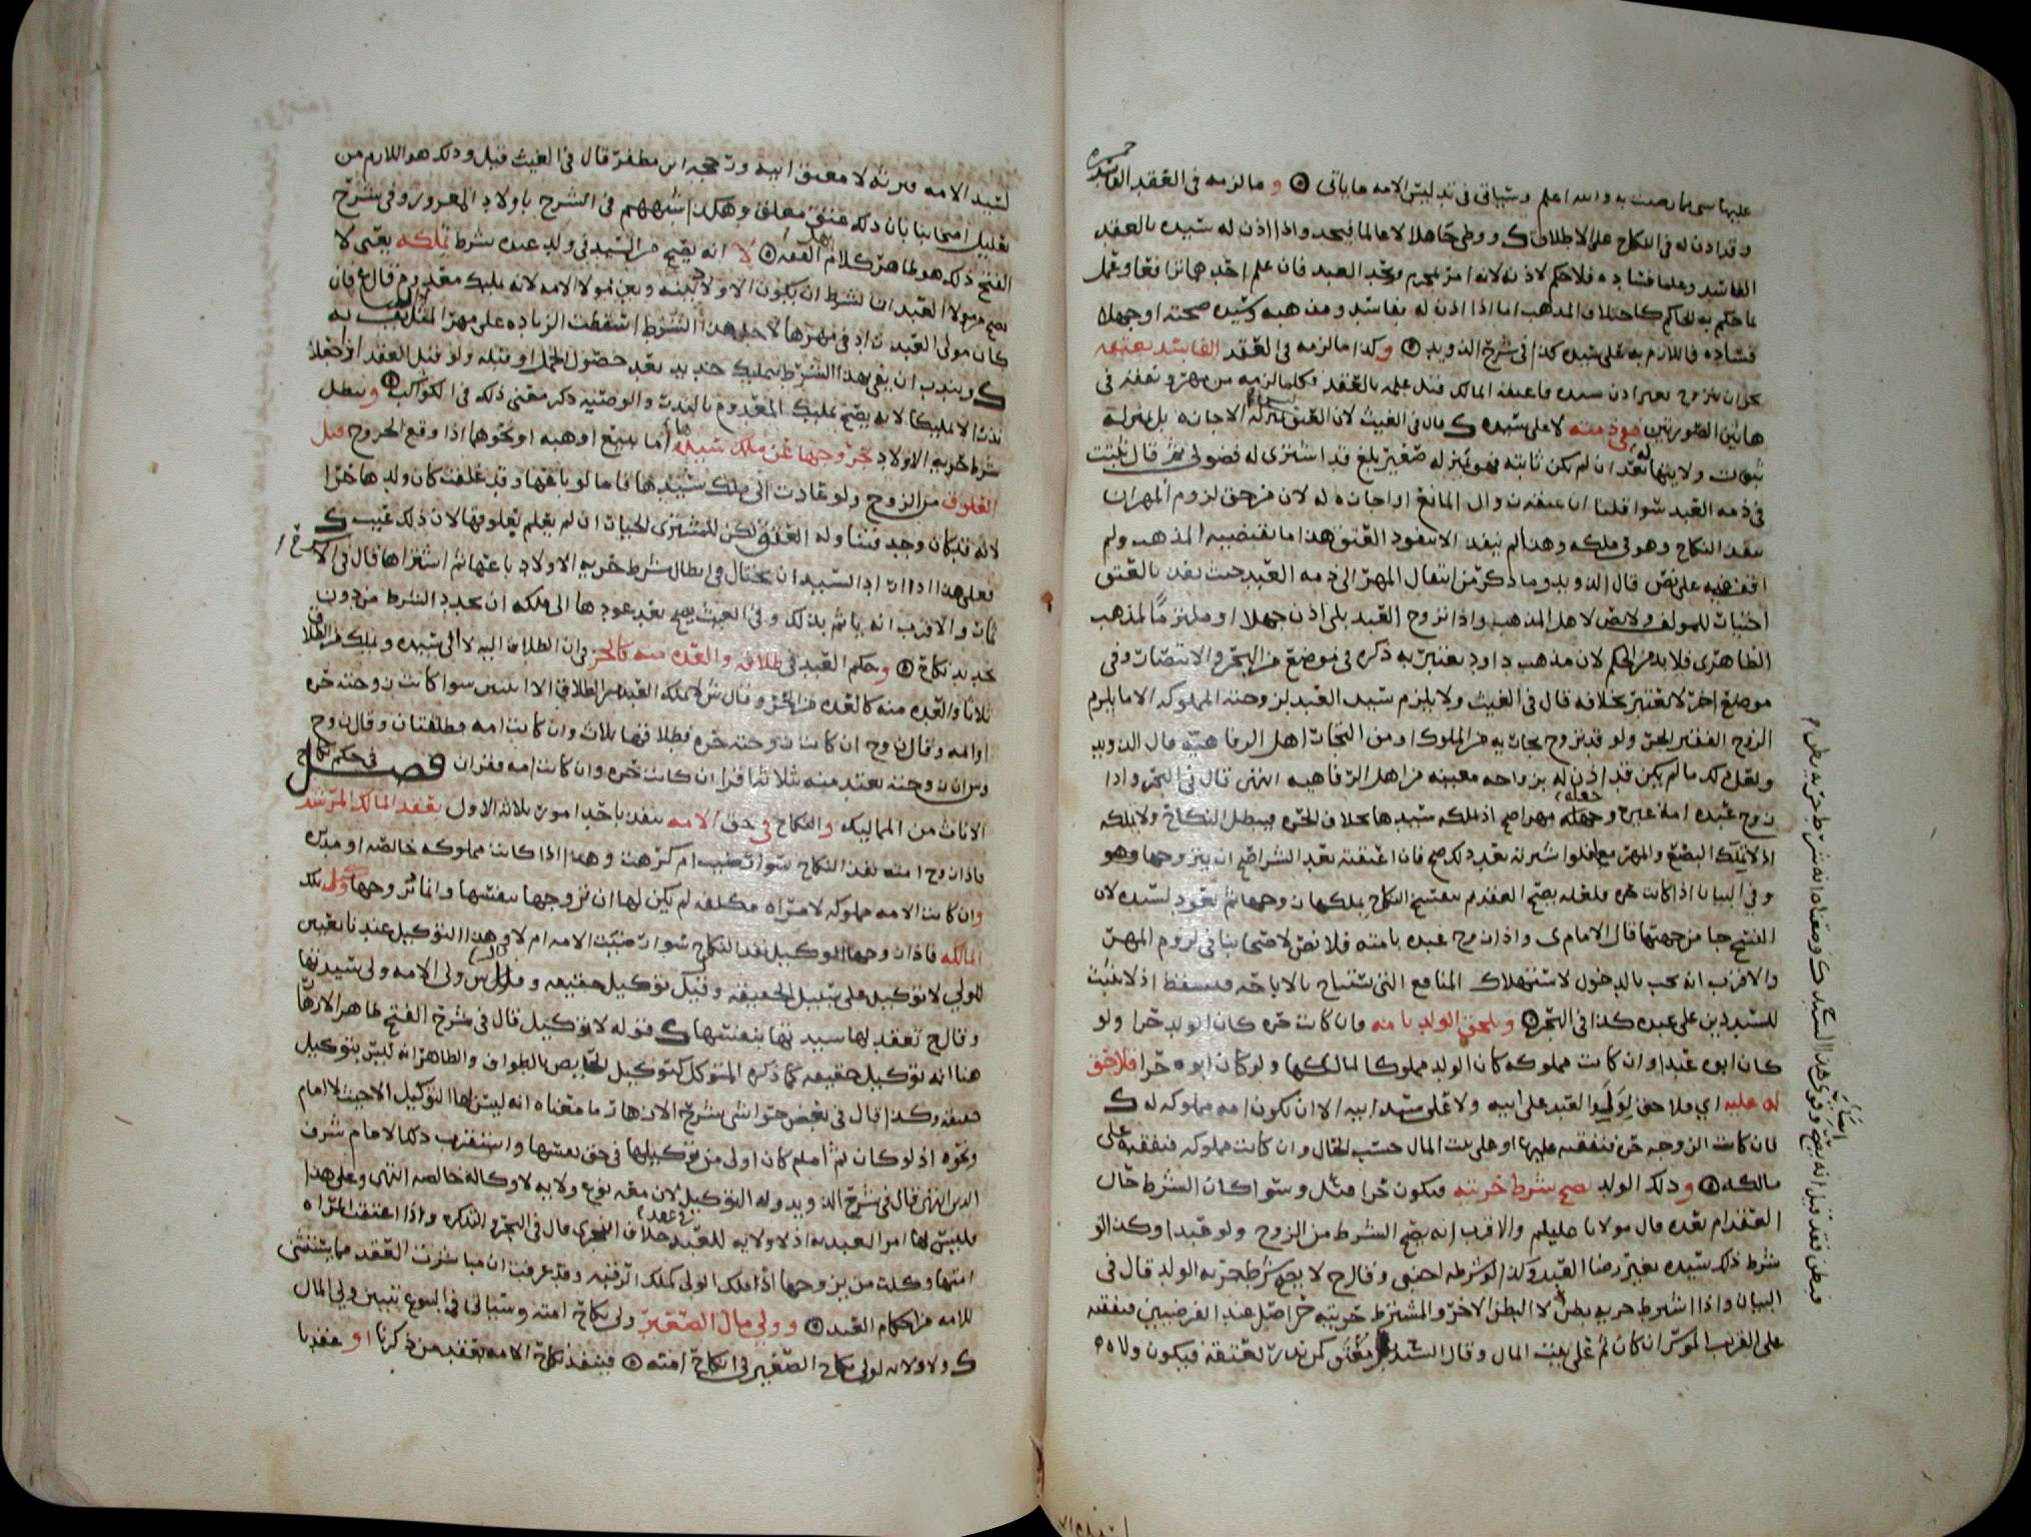 عليها سى بما رضيت به والله اعلم وسياتي في تدليس الامه ما ياتي ۞ و ما لزمه في العقد الفاسد
وقد اذن له في النكاح على الاطلاق ك ووطى جاهلا لا عالما فيحد واذا اذن له سيده بالعقد
الفاسد وعلما فساده فلا حكم لاذنه لانه امر بمحرم ويحد العبد فان علم احدهما ترافعا وعمل
ما حكم به الحاكم كاختلاف المذهب اما اذا اذن له بفاسد ومذهبه وسيده صحته او جهلا
فساده فاللازم به على سيده كذا في شرح الذويد ۞ وكذا ما لزمه في العقد الفاسد بعتقه
نحو ان يتزوج بغير اذن سيده فاعتقه المالك قبل علمه بالعقد فكلما لزمه من مهر ونفقه في
هاتين الصورتين ففي ذمته لا على سيده ك قال في الغيث لان العتق ليس بمنزلة الاجازه بل بمنزلة
في ذمه العبد سوا قلنا ان عتقه زوال المانع او اجازه له لان من حق لزوم المهر ان
ينفذ النكاح وهو في ملكه وهنا لم ينفذ الا بنفوذ العتق هذا ما يقتضيه المذهب ولم
اقف فيه على نص قال الذويد وما ذكر من انتقال المهر الى ذمه العبد حيث نفذ بالعتق
اختيار للمولف ولا نص لاهل المذهب واذا تزوج العبد بلى اذن جهلا او ملتزما لمذهب
الظاهري فلا بد من الحكم لان مذهب داود يعتبر به ذكره في موضع من البحر والانتصار وفي
موضع اخر لا يعتبر بخلافه قال في الغيث ولا يلزم سيد العبد لزوجته المملوكه الا ما يلزم
الزوج الفقير الحر ولو قد تزوج بجاريه من الملوك او من التجار اهل الرفاهيه قال الذويد
ولعل ذلك ما لم يكن قد اذن له بزواجه معينه من اهل الرفاهيه انتهى قال في البحر واذا
زوج عبده امة غيره وجعله مهرا صح اذ ملكه سيدها بخلاف الحره فيبطل النكاح ولا تملكه
اذ لا تملك البضع والمهر معا فلوا شرته بعد ذلك صح فان اعتقته بعد الشرا صح ان يتزوجها وهو
وفي البيان اذا كانت حره فلعله يصح العقد ثم ينفسخ النكاح بملكها زوجها ثم يعود لسيده لان
الفسخ جا من جهتها قال الامام ى واذا زوج عبده بامته فلا نص لاصحابنا في لزوم المهر
والاقرب انه يجب بالدخول لاستهلاك المنافع التي تستباح بالاباحه فيسقط اذ لا يثبت
للسيد دين على عبده كذا في البحر ۞ ويلحق الولد بامه فان كانت حره كان الولد حرا ولو
كان ابوه عبدا وان كانت مملوكه كان الولد مملوكا لمالكها ولو كان ابوه حرا فلا حق
له عليه اي فلا حق لولد العبد على ابيه ولا على سيد ابيه الا ان تكون امه مملوكه له ك
فان كانت الزوجه حره فنفقته عليها او على بيت المال حسب الحال وان كانت مملوكه فنفقته على
مالكه ۞ و ذلك الولد يصح شرط حريته فيكون حرا مثل وسوا كان الشرط حال
العقد ام بعده قال مولانا عليلم والاقرب انه يصح الشرط من الزوج ولو عبدا وكذا لو
شرط ذلك سيده بغير رضا العبد وكذا لو شرطه اجنبي وقال ح لا يصح شرط حريه الولد قال في
البيان واذا اشترط حريه بطن لا البطن الاخر والمشترط حريته حر اصل عند الفرضيين فنفقته
على القريب الموسر ان كان ثم على بيت المال وقال السيد معتق كمن نذر بعتقه فيكون ولاه
لسيد الامه فيرثه لا معتق ابيه ورجحه ابن مظفر قال في الغيث قيل وذلك هو اللازم من
تعليل اصحابنا بان ذلك عتق معلق وهكذا شبههم في الشرح باولاد المغرور وفي شرح
الفتح ذلك هو ظاهر كلام الفقه ۞ لا انه يصح من السيد في ولد عبده بشرط تملكه يعني لا
يصح من مولا العبد ان يشترط ان يكون الاولاد بينه وبين مولا الامه لانه تمليك معدوم قال ع فان
كان مولى العبد زاد في مهرها لاجل هذا الشرط اسقطت الزياده على مهر المثل
ك ويندب ان يفي بهذا الشرط بتمليك جديد بعد حصول الحمل او قبله ولو قبل العقد اذا جعله
نذرا لا تمليكا لانه يصح تمليك المعدوم بالنذر والوصيه ذكر معنى ذلك في الكواكب ۞ ويبطل
شرط حريه الاولاد بخروجها عن ملك سيدها اما ببيع او هبه او نحوهما اذا وقع الخروج قبل
العلوق من الزوج ولو عادت الى ملك سيدها فاما لو باعها وقد علقت كان ولدها حرا
لانه قد كان وجد فتناوله العتق لكن للمشتري الخيار ان لم يعلم بعلوقها لان ذلك عيب ك
فعلى هذا اذا اراد السيد ان يحتال في ابطال شرط حريه الاولاد باعها ثم اشتراها قال في الا
ثمار والاقرب انه ياثم بذلك وفي الغيث يصح بعد عودها الى ملكه ان يجدد الشرط من دون
تجديد نكاح ۞ وحكم العبد في طلاقه والعده منه كالحر في ان الطلاق اليه لا الى سيده ويملك من الطلاق
ثلاثا والعده منه كالعده من الحر وقال ش لا يملك العبد من الطلاق الا اثنتين سوا كانت زوجته حره
او امه وقال زوح ان كانت زوجته حره فطلاقها ثلاث وان كانت امه فطلقتان وقال زوح
وس ان زوجته تعتد منه ثلاثة اقرا ان كانت حره وان كانت امه فقران فصل في حكم نكاح
الاناث من المماليك والنكاح في حق الامه ينفذ باحد امور ثلاثه الاول بعقد المالك المرشد
فاذا زوج امته نفذ النكاح سوا رضيت ام كرهت وهذا اذا كانت مملوكه خالصه او مدبره
وان كانت الامه مملوكه لامراه مكلفه لم يكن لها ان تزوجها بنفسها وانما يزوجها وكيل تلك
المالكه فاذا زوجها الوكيل نفذ النكاح سوا رضيت الامه ام لا وفي هذا التوكيل عندنا تعيين
للولي لا توكيل على سبيل الحقيقه وقيل توكيل حقيقه وقال ش ولي الامه ولي سيدتها
وقال ح تعقد لها سيدتها بنفسها ك قوله لا توكيل قال في شرح الفتح ظاهر الازهار
هنا انه توكيل حقيقه كما ذكره المتوكل كتوكيل الحايض بالطواف والظاهر انه ليس بتوكيل
حقيقه وكذا قال في بعض حواشي شرح الازهار ما معناه انه ليس لها التوكيل الا حيث لا امام
ونحوه اذ لو كان ثم امام كان اولى من توكيلها في حق نفسها واستقرب ذلك الامام شرف
الدين انتهى قال في شرح الذويد وله التوكيل لان معه نوع ولايه لا وكالة خالصه انتهى وعلى هذا
فليس لها امر العبد به اذ لا ولايه للعبد خلاف النجري قال في البحر والتذكره واذا اعتقت المراه
امتها وكلت من يزوجها اذ تملك الولى كملك الرقبه وقد عرفت ان مباشرت العقد مما يستثنى
للامه من احكام العبد ۞ و ولي مال الصغير ولي نكاح امته وسياتي في البيوع تبيين ولي المال
ك ولا ولايه لولي نكاح الصغير في انكاح امته ۞ فينفذ نكاح الامه بعقد من ذكرنا او عقد